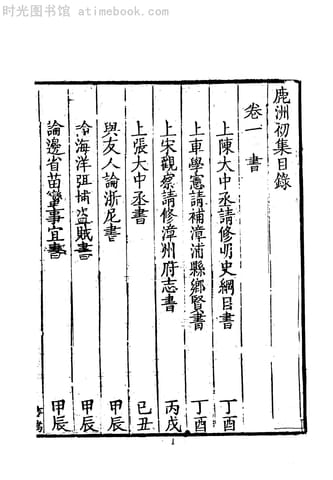 时光图书馆 atimebook.com
鹿洲初集目錄
卷一 書
上陳大中丞請修明史綱目書 丁酉
上車學憲請補漳浦縣鄉賢書 丁酉
上宋觀察請修漳州府志書 丙戌
上張大中丞書 己丑
與友人論浙尼書 甲辰
論海洋弭捕盜賊書 甲辰
論邊省苗蠻事宜書 甲辰
1